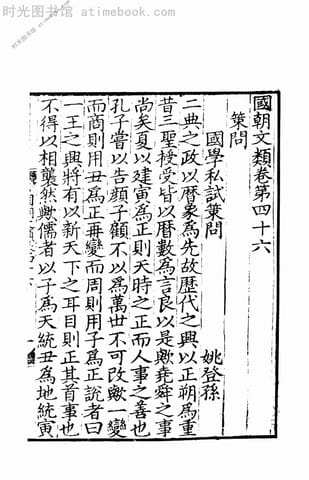 时光图书馆 - atimebook.com
國朝文類卷第四十六
策問
國學私試策問 姚登孫
二典之政以曆象爲先故歷代之興以正朔爲重
昔三聖授受皆以曆數爲言良以是歟堯舜之事
尚矣夏以建寅爲正則天時之正而人事之善也
孔子嘗以告顏子顧不以爲萬世不可改歟一變
而商則用丑爲正再變而周則用子爲正說者曰
一王之興將有以新天下之耳目則正其首事也
不得以相襲然歟儒者以子爲天統丑爲地統寅